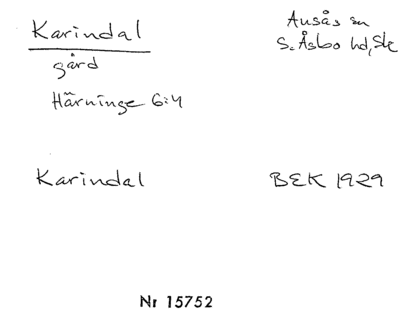 Karindal
Ausås sn
gård
S. Åsbo hd, Sk
Härninge 6:4
Karindal
BEK 1929
Nr 15752